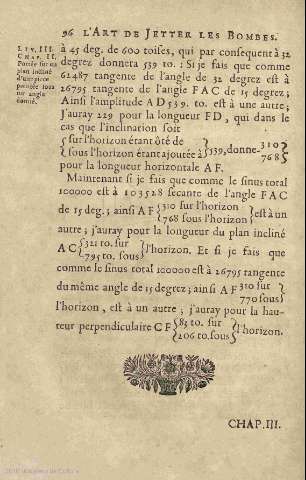 96 L'ART DE JETTER LES BOMBES.
LIV. III.
CHAP. II.
Portée sur un
plan incliné
d'une piece
pointée sous
un angle
donné.
à 45 deg. de 600 toises, qui par consequent à 32
degrez donnera 539 to. : Si je fais que comme
62487 tangente de l'angle de 32 degrez est à
26795 tangente de l'angle F A C de 15 degrez ;
Ainsi l'amplitude A D 539. to. est à une autre ;
J'auray 229 pour la longueur F D, qui dans le
cas que l'inclination soit
{sur l'horizon étant ôté de
sous l'horizon étant ajoutée à} 539, donne {310
768}
pour la longueur horizontale A F.
Maintenant si je fais que comme le sinus total
100000 est à 103528 secante de l'angle F A C
de 15 deg. ; ainsi A F {310 sur l'horizon
768 sous l'horizon} est à un
autre ; j'auray pour la longueur du plan incliné
A C {321 to. sur
795 to. sous} l'horizon. Et si je fais que
comme le sinus total 100000 est à 26795 tangente
du même angle de 15 degrez ; ainsi A F {310 sur
770 sous}
l'horizon, est à un autre ; j'auray pour la hau-
teur perpendiculaire C F {83 to. sur
206 to. sous} l'horizon.
CHAP. III.